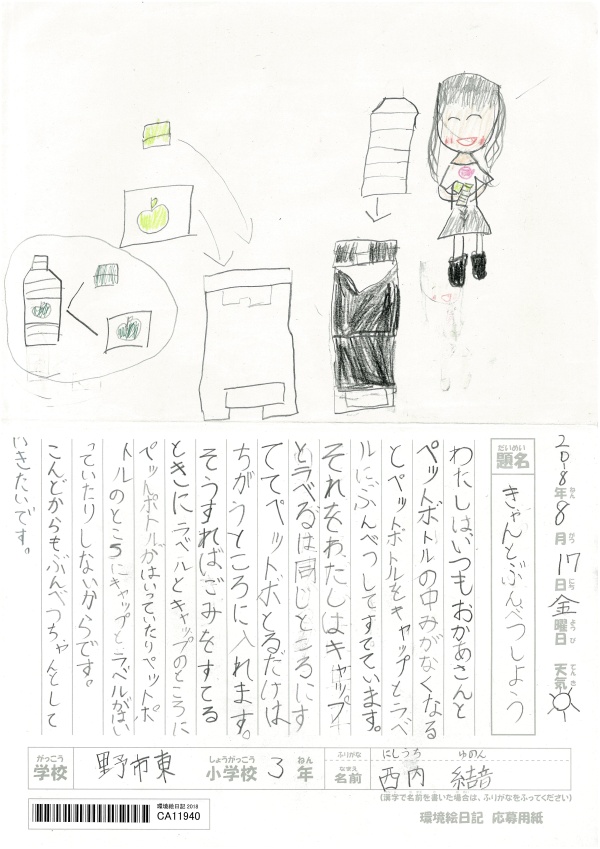 2018年8月17日金曜日 天気
ねん がつ にち ようび てんき
だいめい
題名
きゃんとぶんべつしよう
わたしは、いつもおかあさんと
ペットボトルの中みがなくなる
とペットボトルをキャップとラベ
ルにぶんべつしてすてています。
それをわたしはキャップ
とラベるは同じところにす
ててペットボとるだけは
ちがうところに入れます。
そうすればごみをすてる
ときにラベルとキャップのところに
ペットボトルがはいっていたりペットボ
トルのところにキャップとラベルがはい
ていたりしないからです。
こんどからもぶんべつちゃんとして
いきたいです。
がっこう
学校
野市東
しょうがっこう
小学校
3
ねん
年
ふりがな
にしうち ゆのん
なまえ
名前
西内 結音
(漢字で名前を書いた場合は、ふりがなをふってください)
環境絵日記 2018
CA11940
環境絵日記 応募用紙